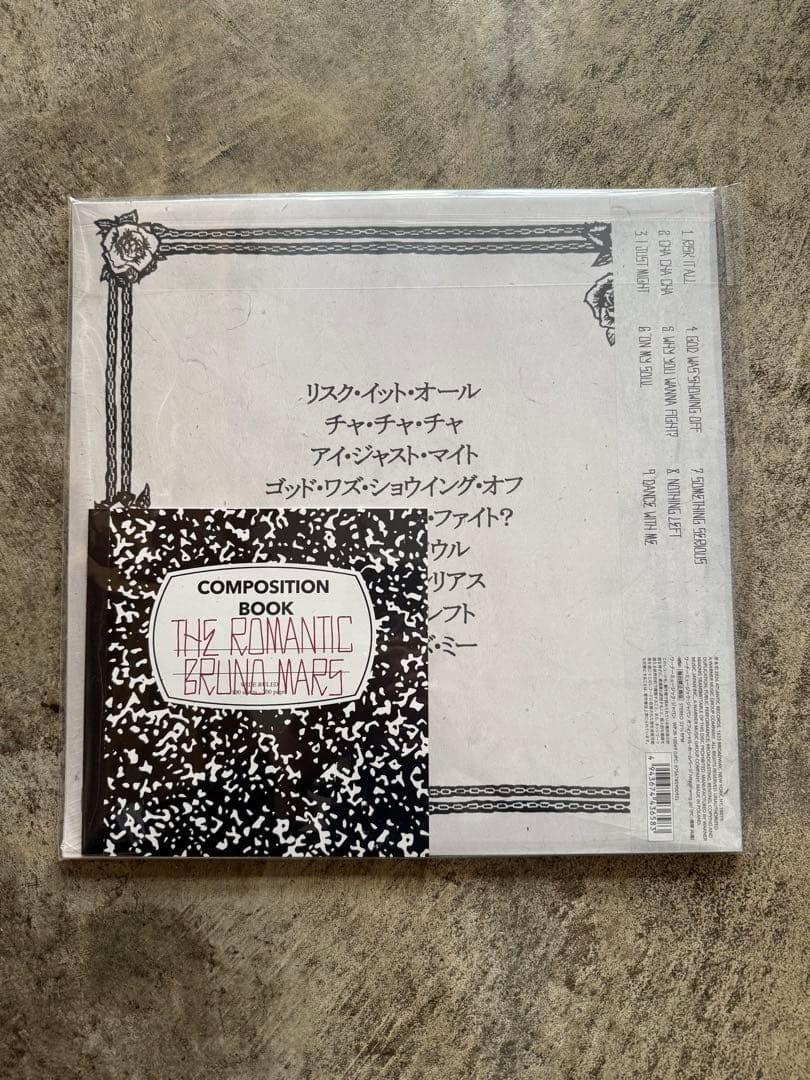 リスク・イット・オール
チャ・チャ・チャ
アイ・ジャスト・マイト
ゴッド・ワズ・ショウイング・オフ
・ファイト?
ウル
リアス
レフト
ズ・ミー
COMPOSITION
BOOK
THE ROMANTIC
BRUNO MARS
WIDE RULED
1. RISK IT ALL
2. CHA CHA CHA
3. I JUST MIGHT
4. GOD WAS SHOWING OFF
5. WHY YOU WANNA FIGHT?
6. ON MY SOUL
7. SOMETHING SERIOUS
8. NOTHING LEFT
9. DANCE WITH ME
STEREO 33⅓ RPM
4 943674 436583